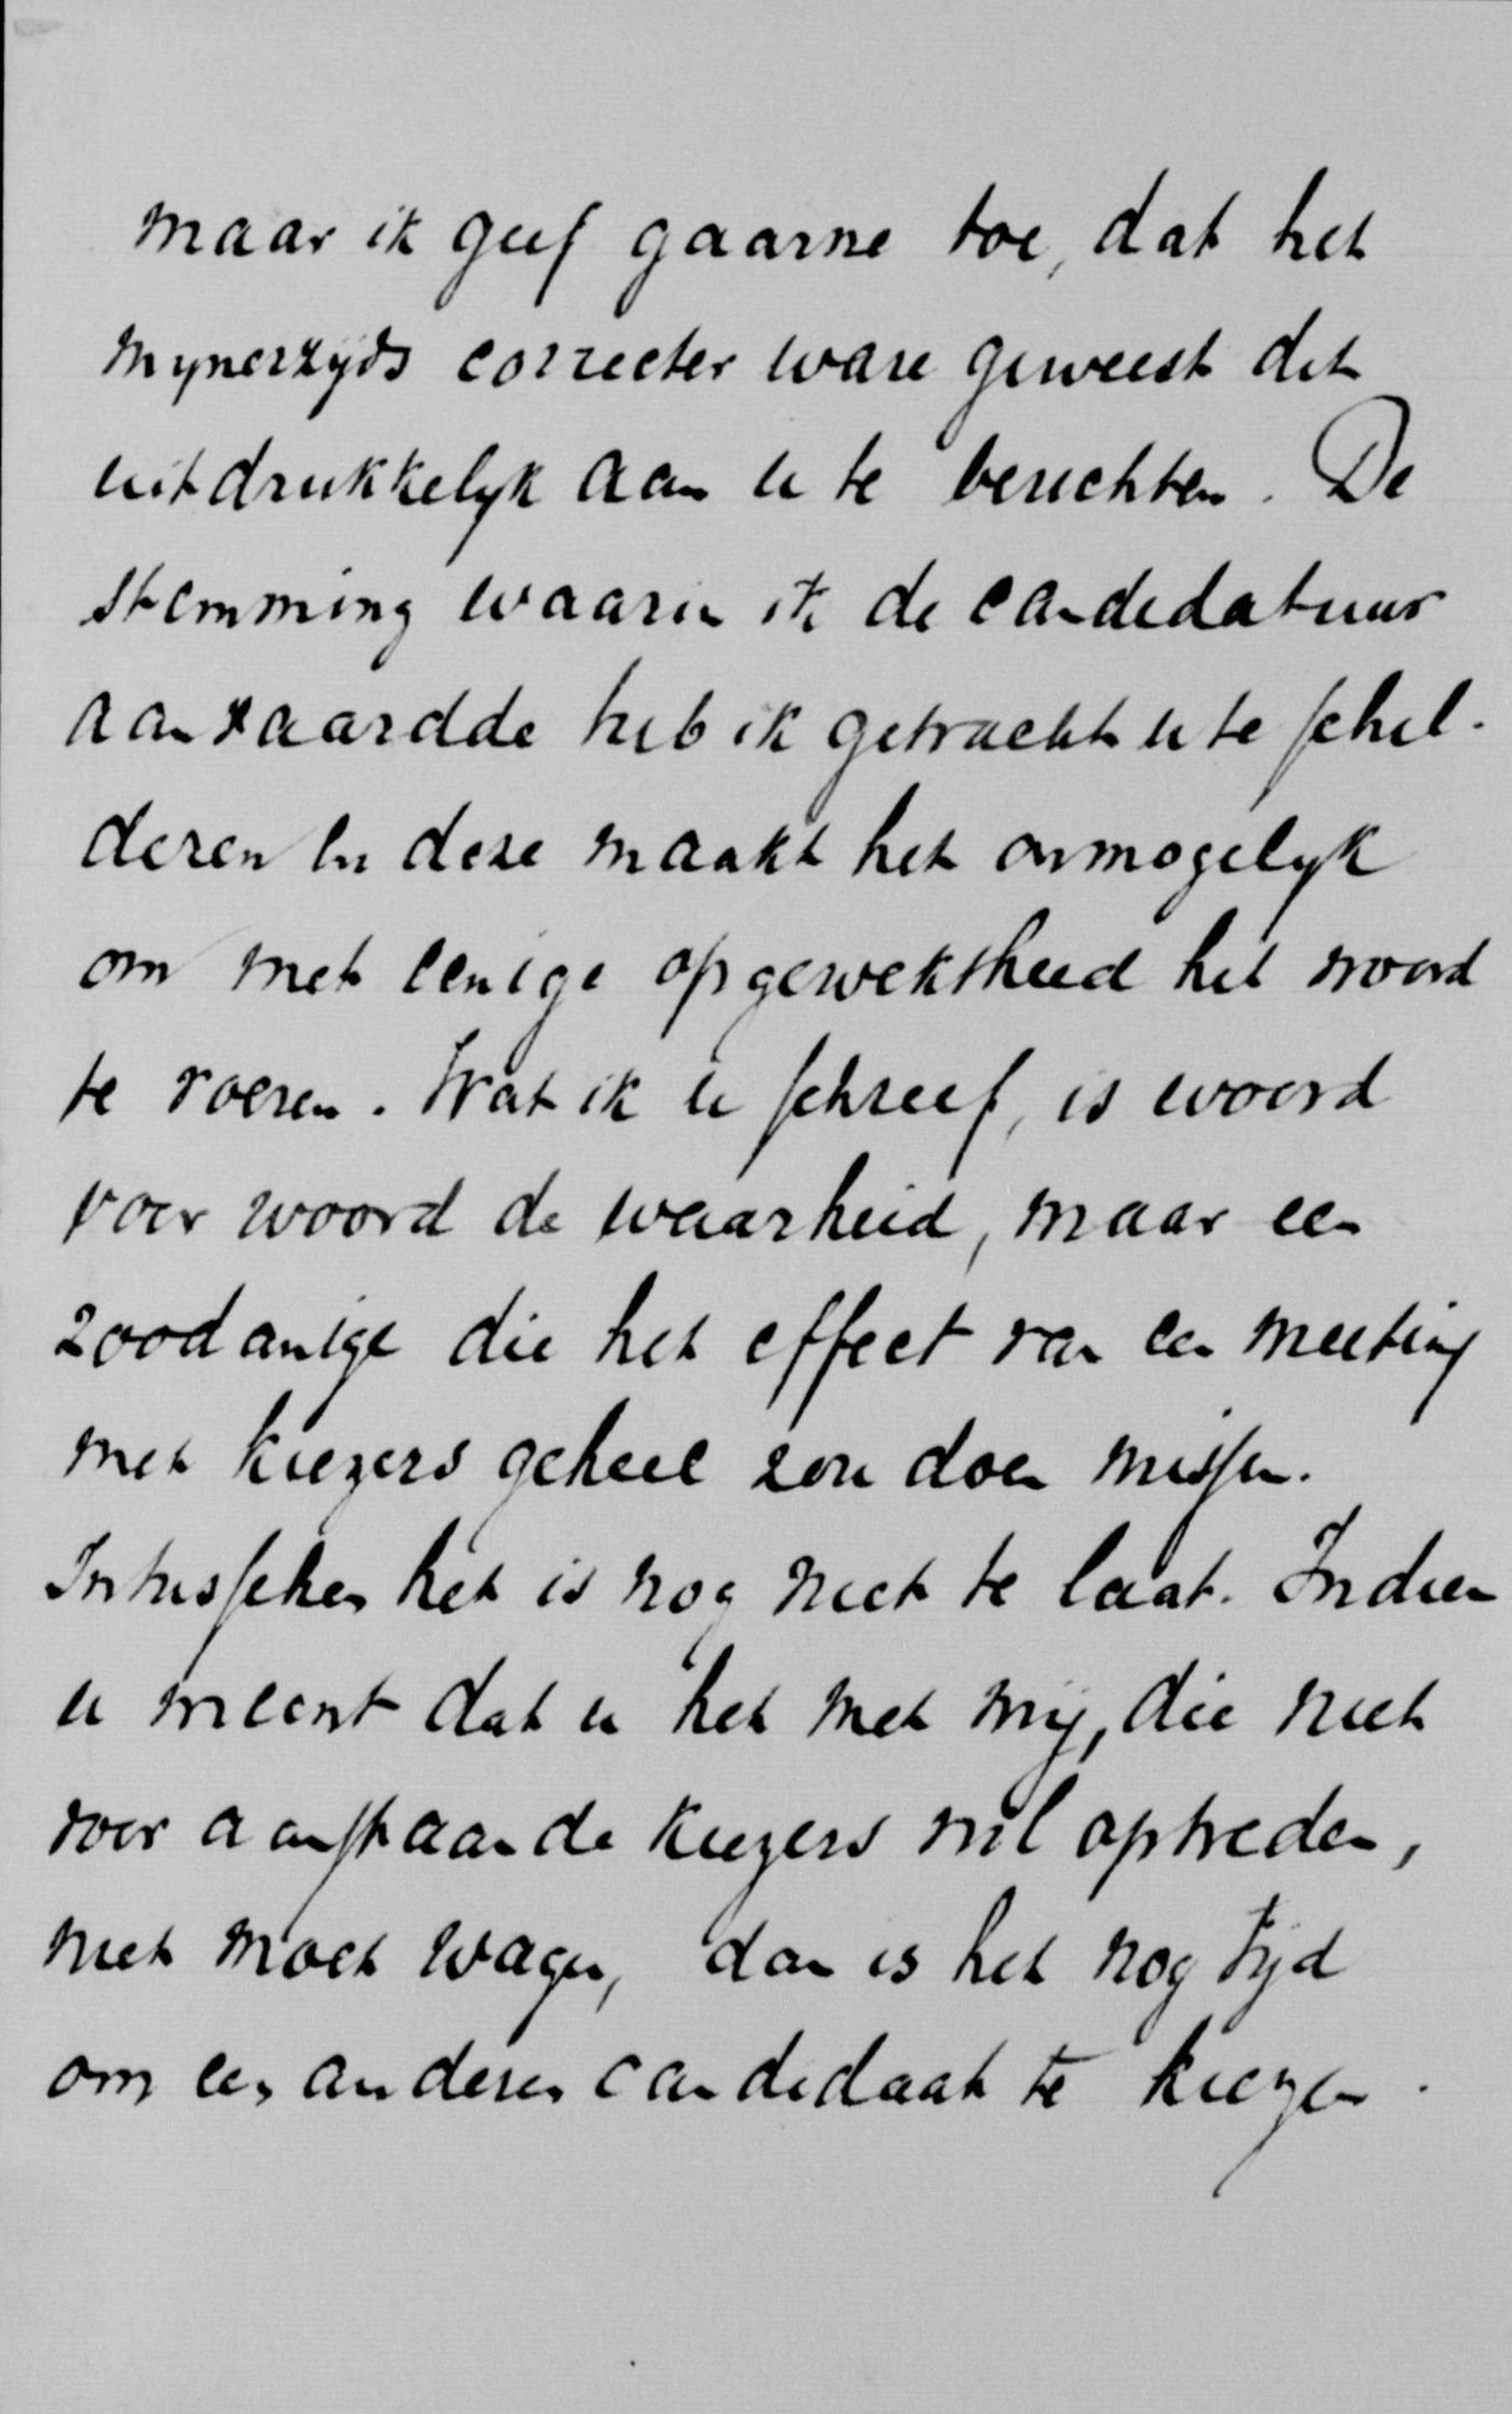 maar ik geef gaarne toe, dat het
mynerzyds correcter ware geweest dit
uitdrukkelyk aan u te berichten. De
stemming waarin ik de candidatuur
aanvaardde heb ik getracht u te schil-
deren en deze maakt het onmogelyk
om met eenige opgewektheid het woord
te voeren. Wat ik u schreef, is woord
voor woord de waarheid, maar een
zoodanige die het effect van een meeting
met kiezers geheel zou doen missen.
Intusschen het is nog niet te laat. Indien
u meent dat u het met mij, die niet
voor aanstaande kiezers wil optreden,
niet moet wagen, dan is het nog tijd
om een anderen candidaat te kiezen.